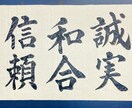 誠実
和合
信頼